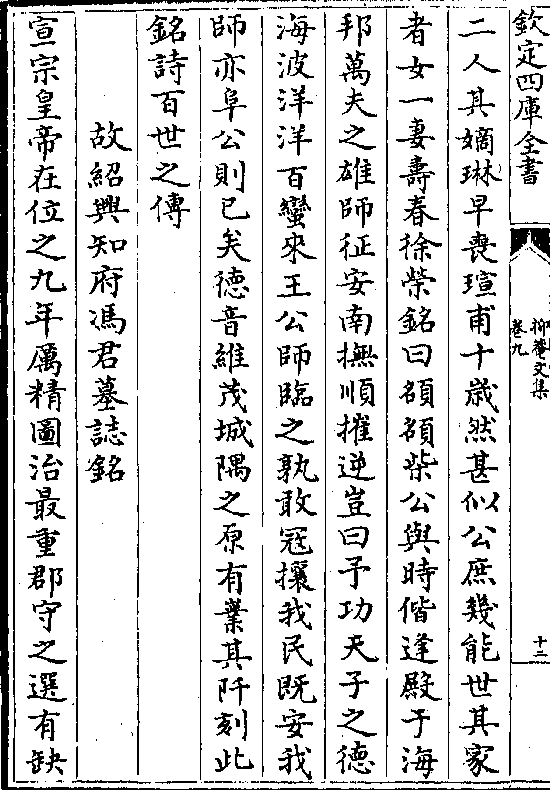 欽定四庫全書
抑菴文集
卷九
十二
二人其嫡琳早喪瑄甫十歲然甚似公庶幾能世其家
者女一妻壽春徐榮銘曰頟頟柴公與時偕逢殿于海
邦萬夫之雄師征安南撫順摧逆豈曰予功天子之德
海波洋洋百蠻來王公師臨之孰敢冦攘我民既安我
師亦阜公則已矣德音維茂城隅之原有業其阡刻此
銘詩百世之傳
故紹興知府馮君墓誌銘
宣宗皇帝在位之九年厲精圖治最重郡守之選有缺